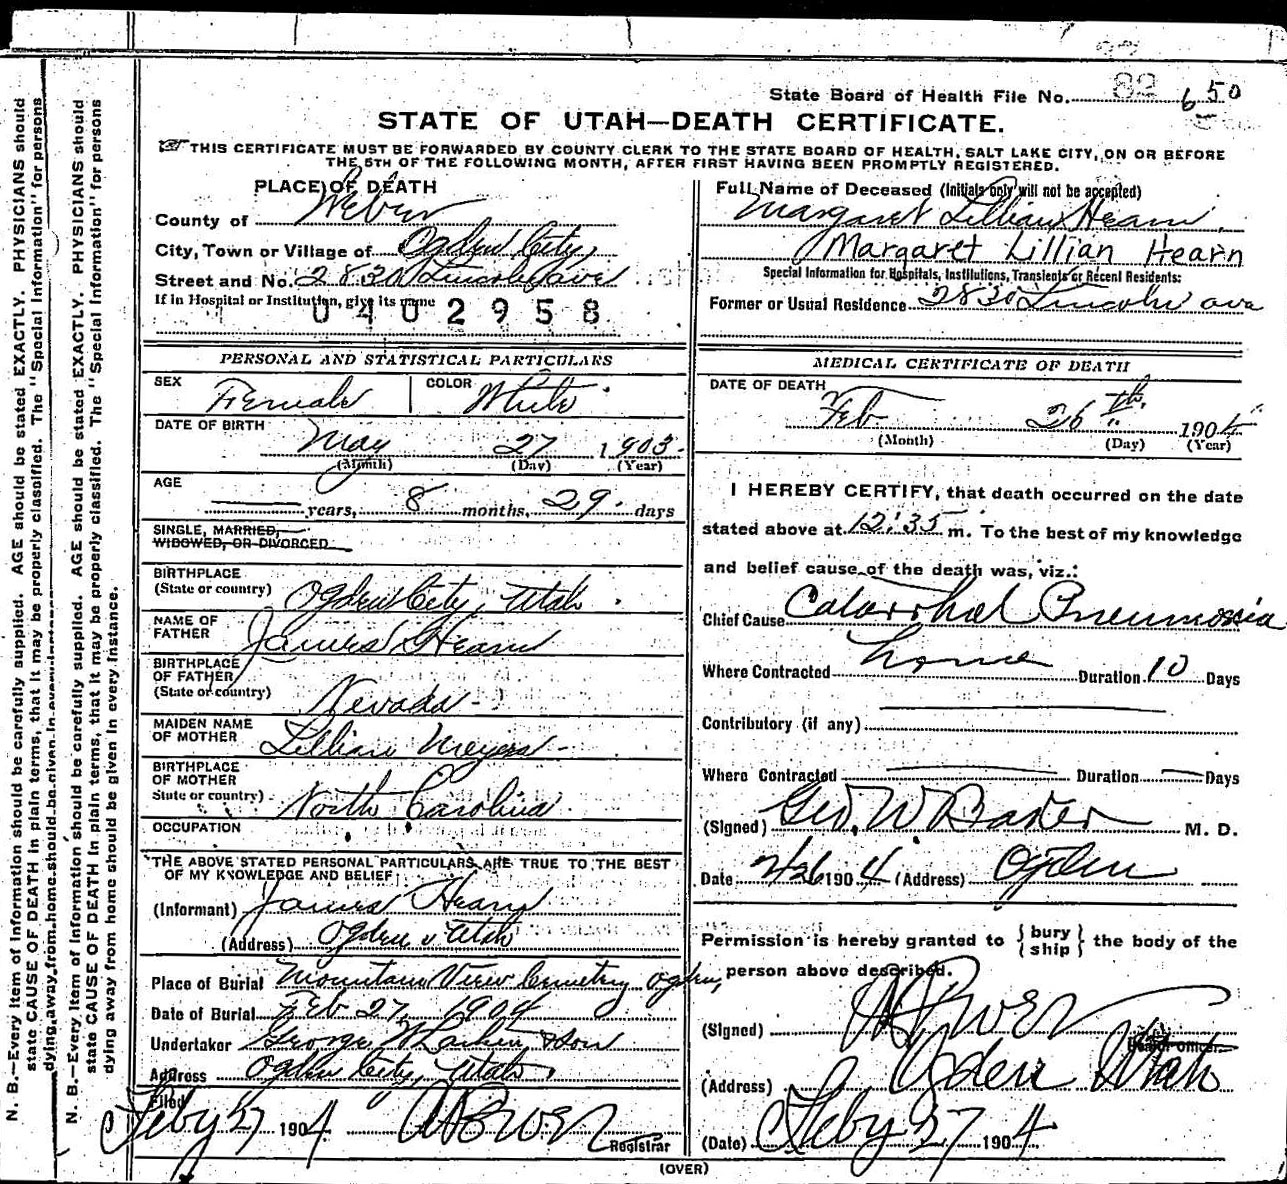 State Board of Health File No. 82 650
STATE OF UTAH—DEATH CERTIFICATE.
THIS CERTIFICATE MUST BE FORWARDED BY COUNTY CLERK TO THE STATE BOARD OF HEALTH, SALT LAKE CITY, ON OR BEFORE
THE 5TH OF THE FOLLOWING MONTH, AFTER FIRST HAVING BEEN PROMPTLY REGISTERED.
PLACE OF DEATH
County of Weber
City, Town or Village of Ogden City
Street and No. 2830 Lincoln Ave
If in Hospital or Institution, give its name
0402958
PERSONAL AND STATISTICAL PARTICULARS
SEX Female COLOR White
DATE OF BIRTH May 27 1903
(Month) (Day) (Year)
AGE
years, 8 months, 29 days
SINGLE, MARRIED,
WIDOWED, OR DIVORCED
BIRTHPLACE
(State or country) Ogden City, Utah.
NAME OF
FATHER James Hearn
BIRTHPLACE
OF FATHER
(State or country) Nevada
MAIDEN NAME
OF MOTHER Lillian Meyers
BIRTHPLACE
OF MOTHER
State or country) North Carolina
OCCUPATION
THE ABOVE STATED PERSONAL PARTICULARS ARE TRUE TO THE BEST
OF MY KNOWLEDGE AND BELIEF
(Informant) James Hearn
(Address) Ogden Utah
Place of Burial Mountain View Cemetery Ogden,
Date of Burial Feb 27, 1904
Undertaker George W Larkin & Son
Address Ogden City, Utah
Filed
Feby 27 1904
Registrar
Full Name of Deceased (Initials only will not be accepted)
Margaret Lillian Hearn,
Margaret Lillian Hearn
Special Information for Hospitals, Institutions, Transients or Recent Residents:
Former or Usual Residence 2830 Lincoln ave
MEDICAL CERTIFICATE OF DEATH
DATE OF DEATH
Feb 26th 1904
(Month) (Day) (Year)
I HEREBY CERTIFY, that death occurred on the date
stated above at 12:35 m. To the best of my knowledge
and belief cause of the death was, viz.:
Chief Cause Catarrhal Pneumonia
Where Contracted home Duration 10 Days
Contributory (if any)
Where Contracted Duration Days
(Signed) Geo. W. Baker M. D.
Date 2/26 1904 (Address) Ogden
Permission is hereby granted to { bury ship } the body of the
person above described.
(Signed)
Health Officer
(Address) Ogden Utah
(Date) Feby 27 1904
(OVER)
N. B.—Every item of information should be carefully supplied. AGE should be stated EXACTLY. PHYSICIANS should
state CAUSE OF DEATH in plain terms, that it may be properly classified. The "Special Information" for persons
dying away from home should be given in every instance.
N. B.—Every item of information should be carefully supplied. AGE should be stated EXACTLY. PHYSICIANS should
state CAUSE OF DEATH in plain terms, that it may be properly classified. The "Special Information" for persons
dying away from home should be given in every instance.